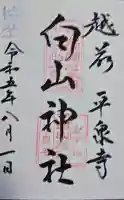 越前 平泉寺
白山神社
令和五年八月一日